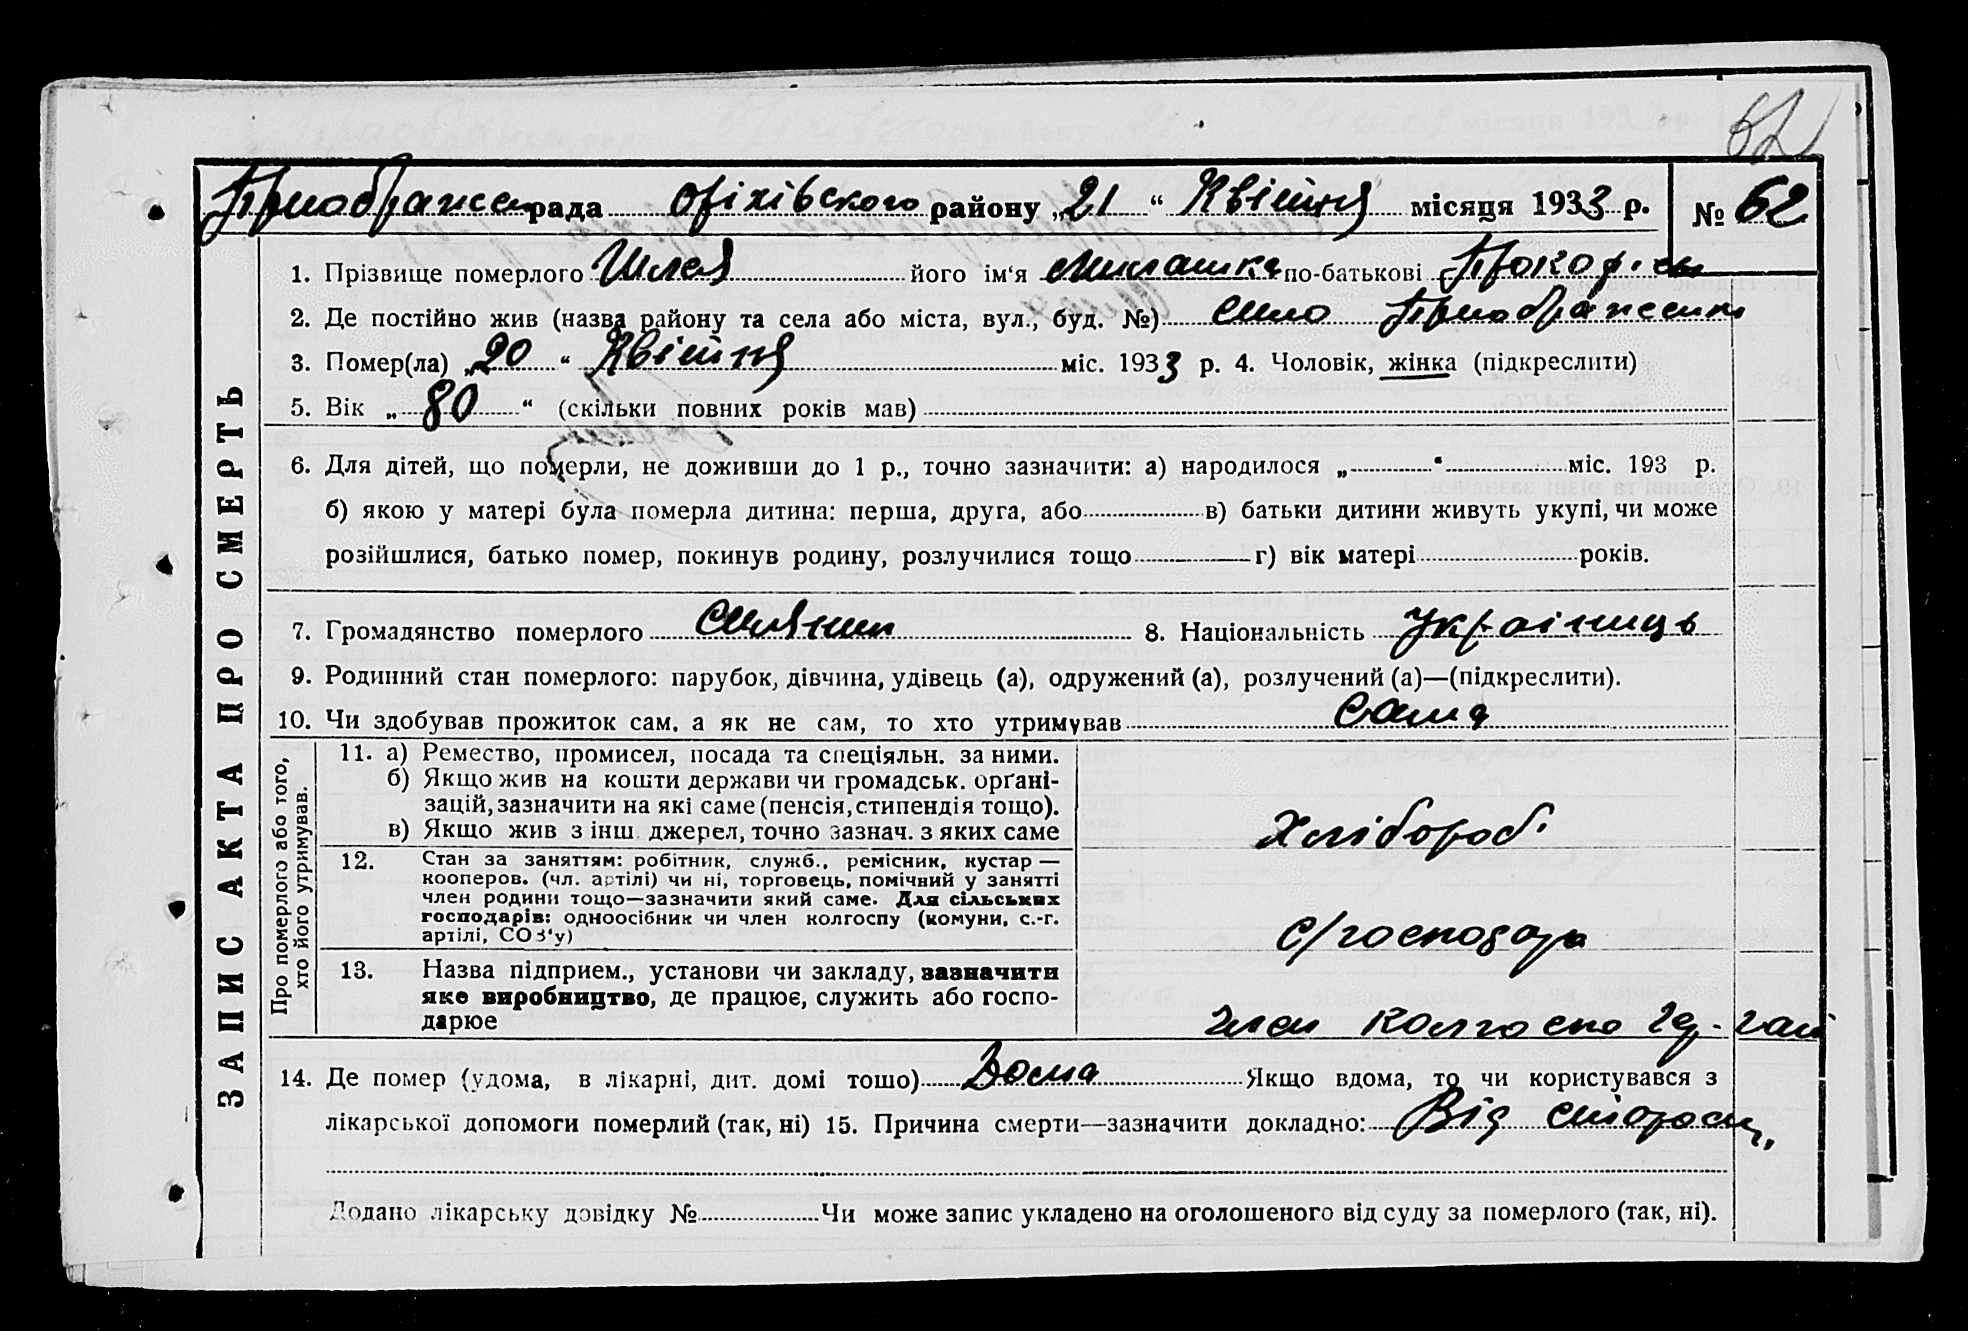 62
Приображен рада Оріхівского району „21“ Квітня місяця 1933 р. № 62
ЗАПИС АКТА ПРО СМЕРТЬ
1. Прізвище померлого Шлея його ім‘я по-батькові
2. Де постійно жив (назва району та села або міста, вул., буд. №) село
3. Помер(ла) „20“ Квітня міс. 1933 р. 4. Чоловік, жінка (підкреслити)
5. Вік „80“ (скільки повних років мав)
6. Для дітей, що померли, не доживши до 1 р., точно зазначити: а) народилося „ “ міс. 193 р.
б) якою у матері була померла дитина: перша, друга, або в) батьки дитини живуть укупі, чи може
розійшлися, батько помер, покинув родину, розлучилися тощо г) вік матері років.
7. Громадянство померлого селянин 8. Національність Українець
9. Родинний стан померлого: парубок, дівчина, удівець (а), одружений (а), розлучений (а)—(підкреслити).
10. Чи здобував прожиток сам, а як не сам, то хто утримував Сама
Про померлого або того,
хто його утримував.
11. а) Ремество, промисел, посада та спеціяльн. за ними.
б) Якщо жив на кошти держави чи громадськ. орґані-
зацій, зазначити на які саме (пенсія, стипендія тощо).
в) Якщо жив з інш. джерел, точно зазнач. з яких саме
Хлібороб.
12. Стан за заняттям: робітник, служб., ремісник, кустар —
кооперов. (чл. артілі) чи ні, торговець, помічний у занятті
член родини тощо—зазначити який саме. Для сільських
господарів: одноосібник чи член колгоспу (комуни, с.-г.
артілі, СОЗ‘у)
с/господарь
13. Назва підприєм., установи чи закладу, зазначити
яке виробництво, де працює, служить або госпо-
дарює
член колгоспо
14. Де помер (удома, в лікарні, дит. домі тощо) Дома Якщо вдома, то чи користувався з
лікарської допомоги померлий (так, ні) 15. Причина смерти—зазначити докладно: Від старости,
Додано лікарську довідку № Чи може запис укладено на оголошеного від суду за померлого (так, ні).